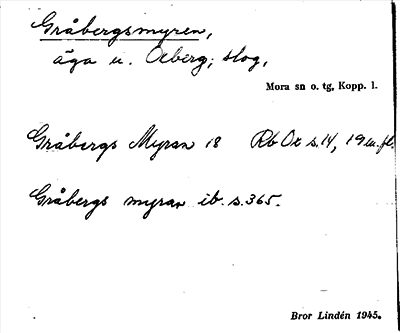 Gråbergsmyren,
äga u. Oxberg; slog,
Mora sn o. tg, Kopp. l.
Gråbergs Myran 18 Rb Ox s. 14, 19 m. fl.
Gråbergs myran ib. s. 365.
Bror Lindén 1945.